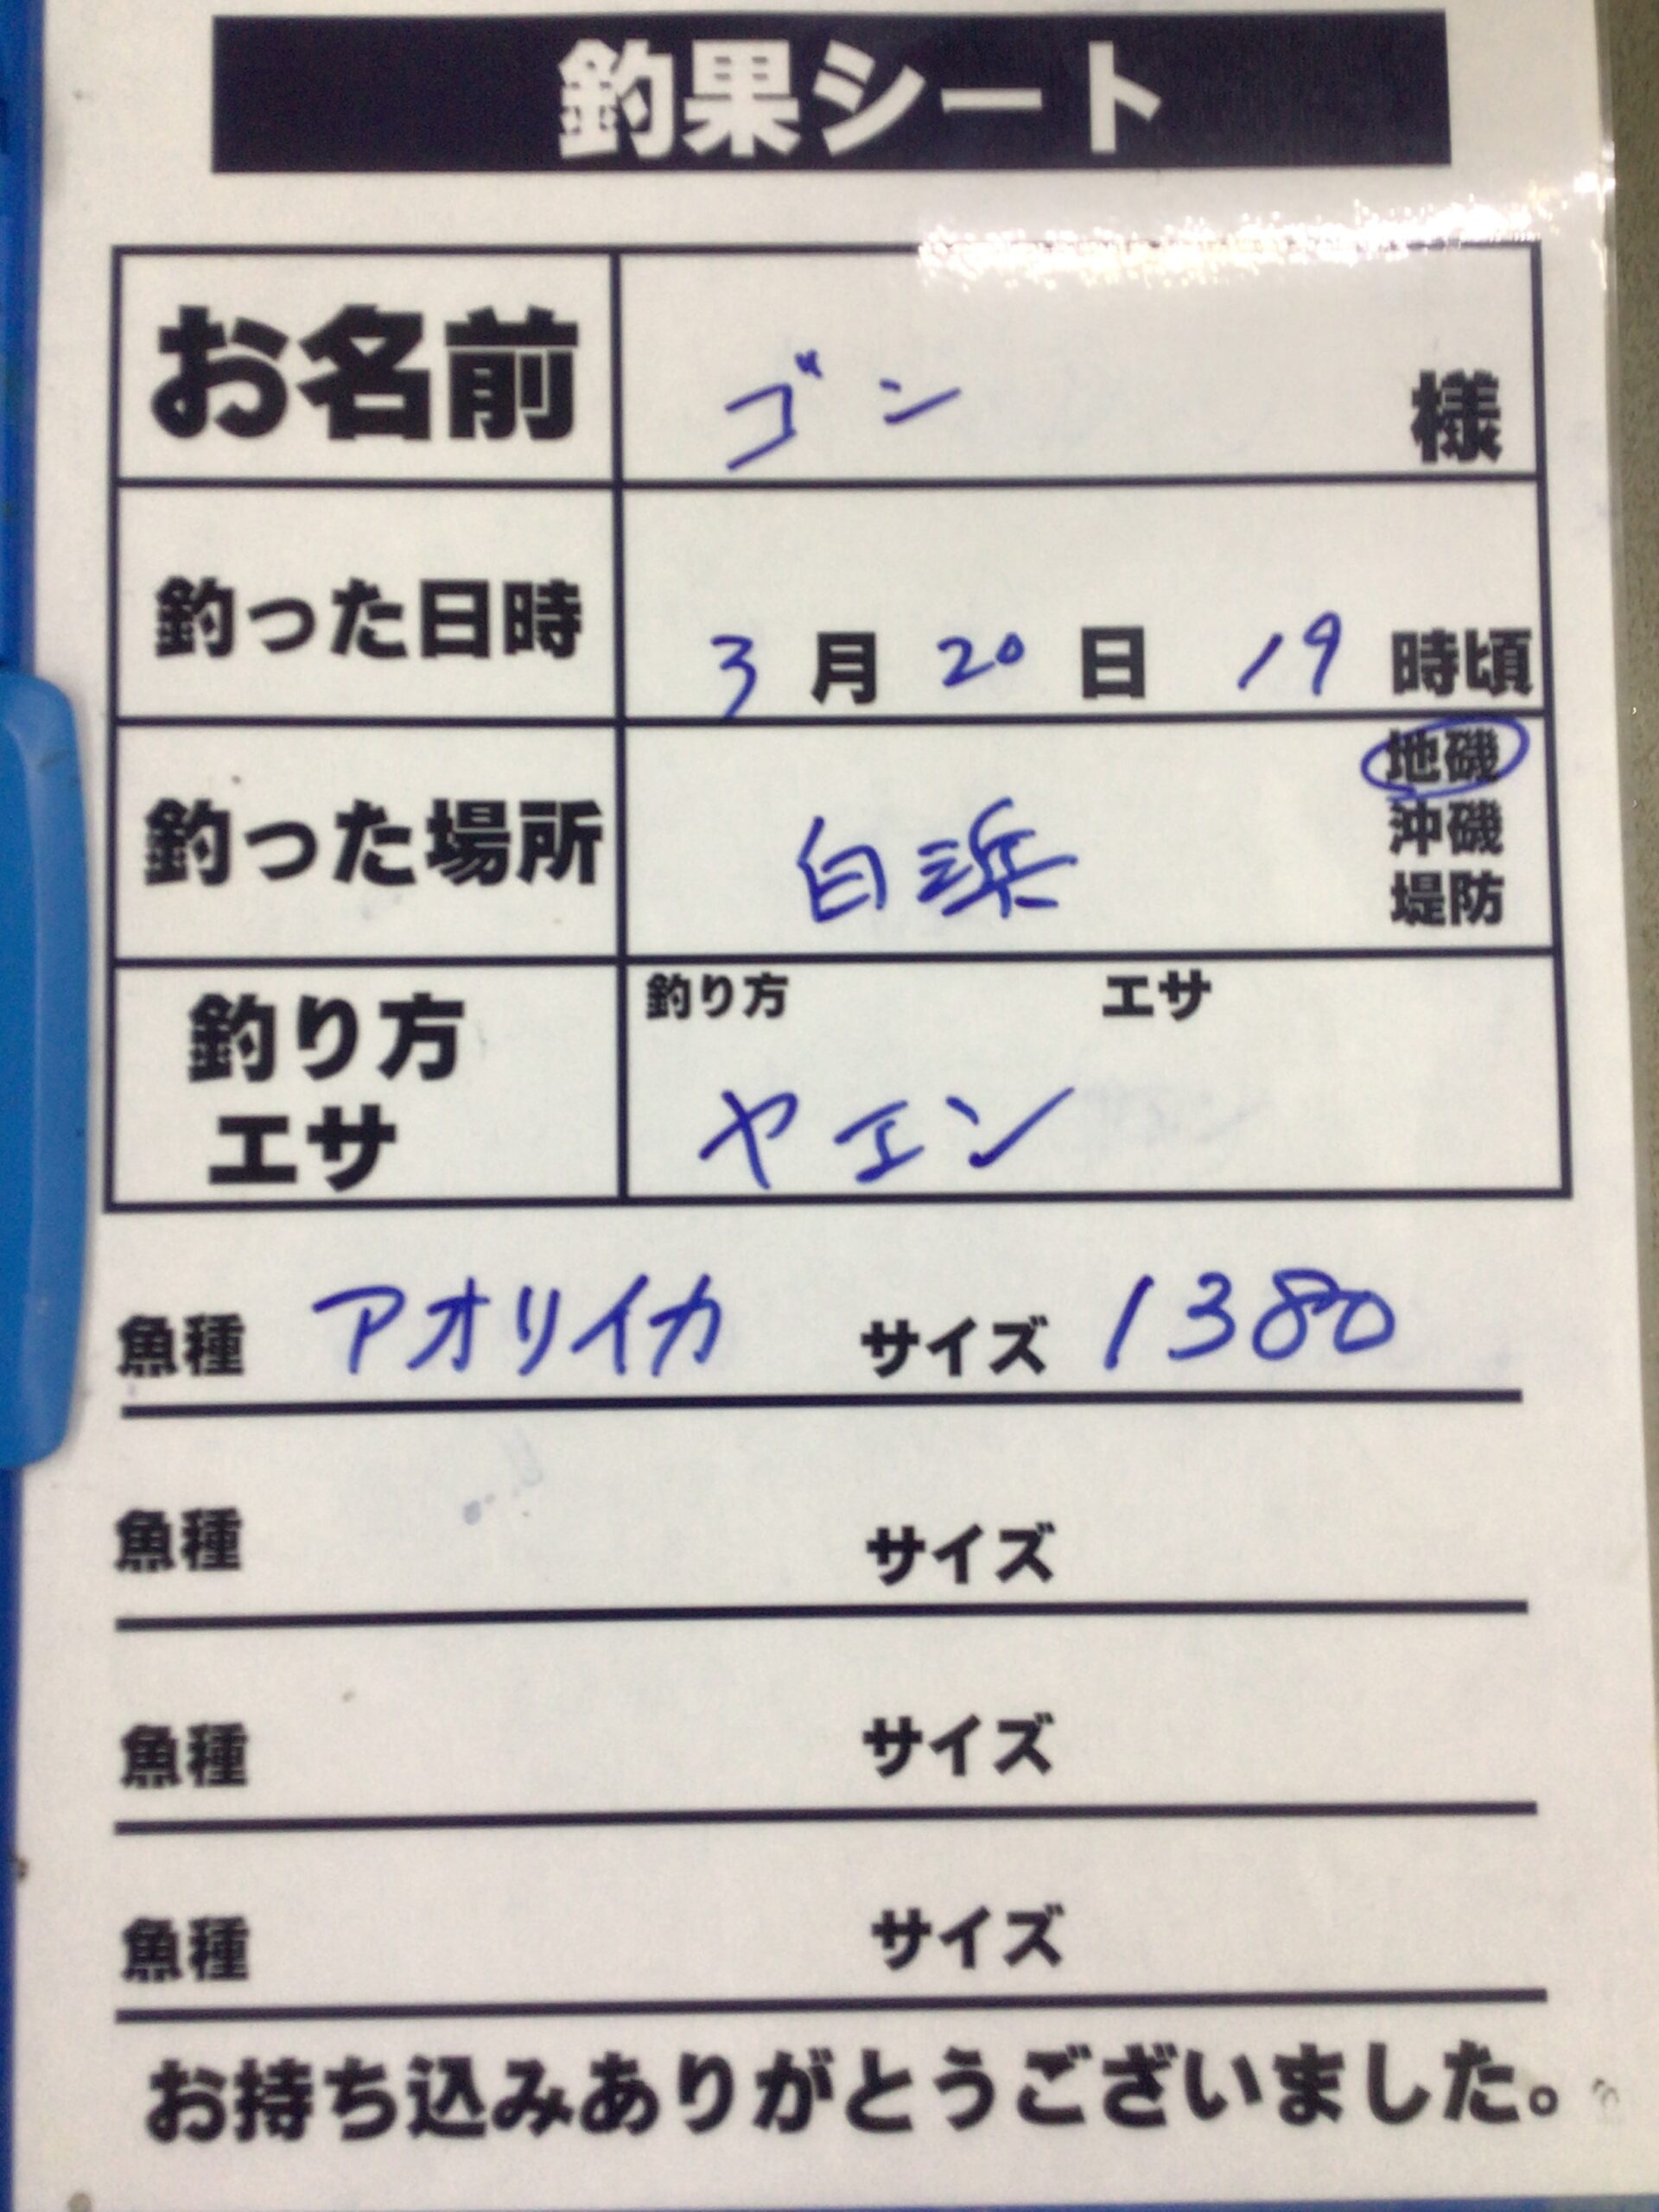 釣果シート
お名前 ゴン 様
釣った日時 3月20日19時頃
釣った場所 白浜 地磯
沖磯
堤防
釣り方 エサ
釣り方
エサ
ヤエン
魚種 アオリイカ サイズ 1380
魚種 サイズ
魚種 サイズ
魚種 サイズ
お持ち込みありがとうございました。